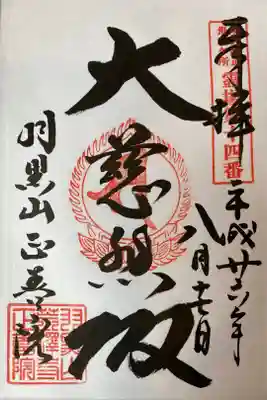 奉拝 平成廿六年
四番
八月十七日
大慈悲殿
羽黒山正善院